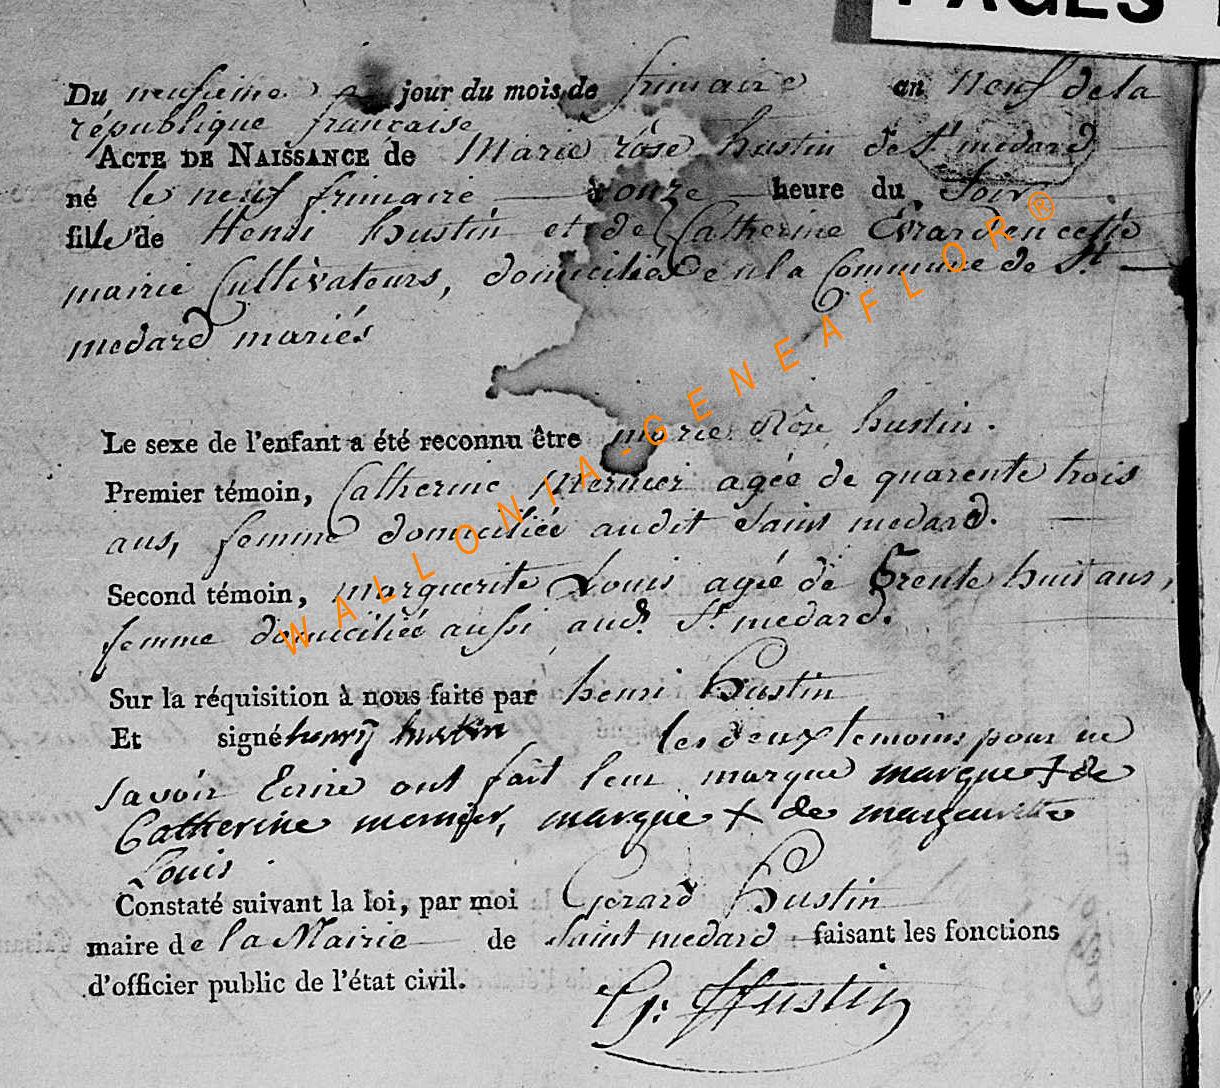 PAGES
Du neufieme jour du mois de frimaire an neuf de la
république française
ACTE DE NAISSANCE de Marie rose hustin de St medard
né le neuf frimaire à onze heure du Soir
fille de Henri hustin et de Catherine Evrard en cette
mairie Cultivateurs, domiciliés en la Commune de St
medard mariés
Le sexe de l'enfant a été reconnu être marie Rose hustin.
Premier témoin, Catherine Mernier agée de quarente trois
ans, femme domiciliée audit Saint medard.
Second témoin, marguerite Louis agée de trente huit ans,
femme domiciliée aussi aud. St medard.
Sur la réquisition à nous faite par henri hustin
Et signé henrÿ hustin les deux temoins pour ne
savoir Ecrire ont fait leur marque marque + de
Catherine mernier, marque + de marguerite
Louis
Constaté suivant la loi, par moi Gerard Hustin
maire de la Mairie de Saint medard faisant les fonctions
d'officier public de l'état civil.
G: Hustin
WALLONIA-GENEAFLOR®